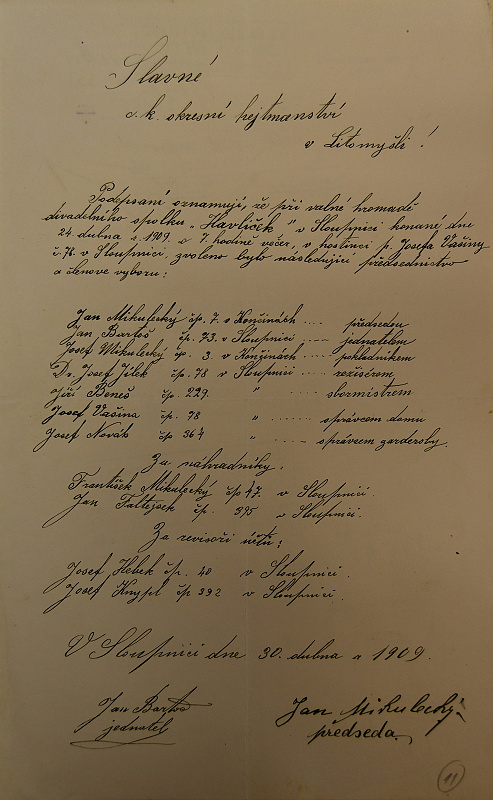 Slavné
c. k. okresní hejtmanství
v Litomyšli!
Podepsaní oznamují, že při valné hromadě
divadelního spolku „Havlíček" v Sloupnici konané dne
24. dubna r. 1909. o 7. hodině večer, v hostinci p. Josefa Vašiny
č. 78. v Sloupnici, zvoleno bylo následující předsednictvo
a členové výboru:
Jan Mikulecký čp. 7. v Končinách .... předsedou
Jan Bartoš čp. 73. v Sloupnici .... jednatelem
Josef Mikulecký čp. 3. v Končinách .... pokladníkem
Dr. Josef Jílek čp. 78 v Sloupnici .... režisérem
Jiří Beneš čp. 229. " .... sbormistrem
Josef Vašina čp. 78 " .... správcem domu
Josef Novák čp. 364 " .... správcem garderoby.
Za náhradníky.
František Mikulecký čp. 47. v Sloupnici.
Jan Faltejsek čp. 395 v Sloupnici.
Za revisory účtů:
Josef Hebek čp. 40 v Sloupnici.
Josef Knypl čp. 392 v Sloupnici.
V Sloupnici dne 30. dubna r. 1909.
Jan Bartoš
jednatel
Jan Mikulecký
předseda.
11